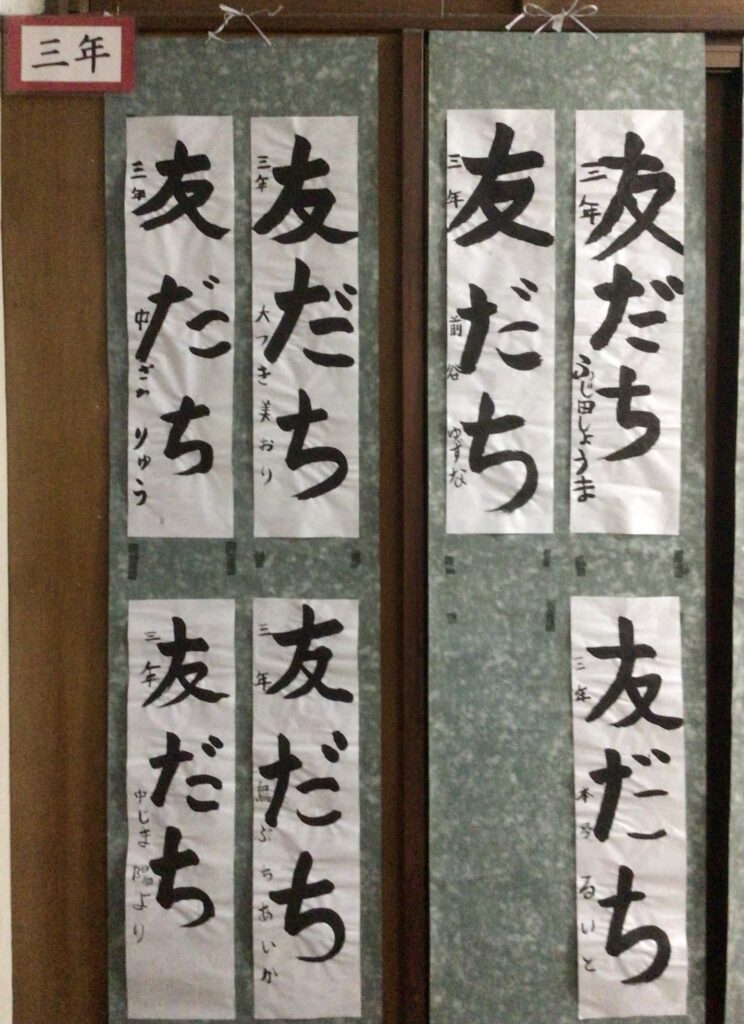 三年
友だち
三年 ふじ田しょうま
友だち
三年 前谷ゆずな
友だち
三年 大つき美おり
友だち
三年 中ざ りゅう
友だち
三年 るいと
友だち
三年 ぶちあいか
友だち
三年 中じま陽より